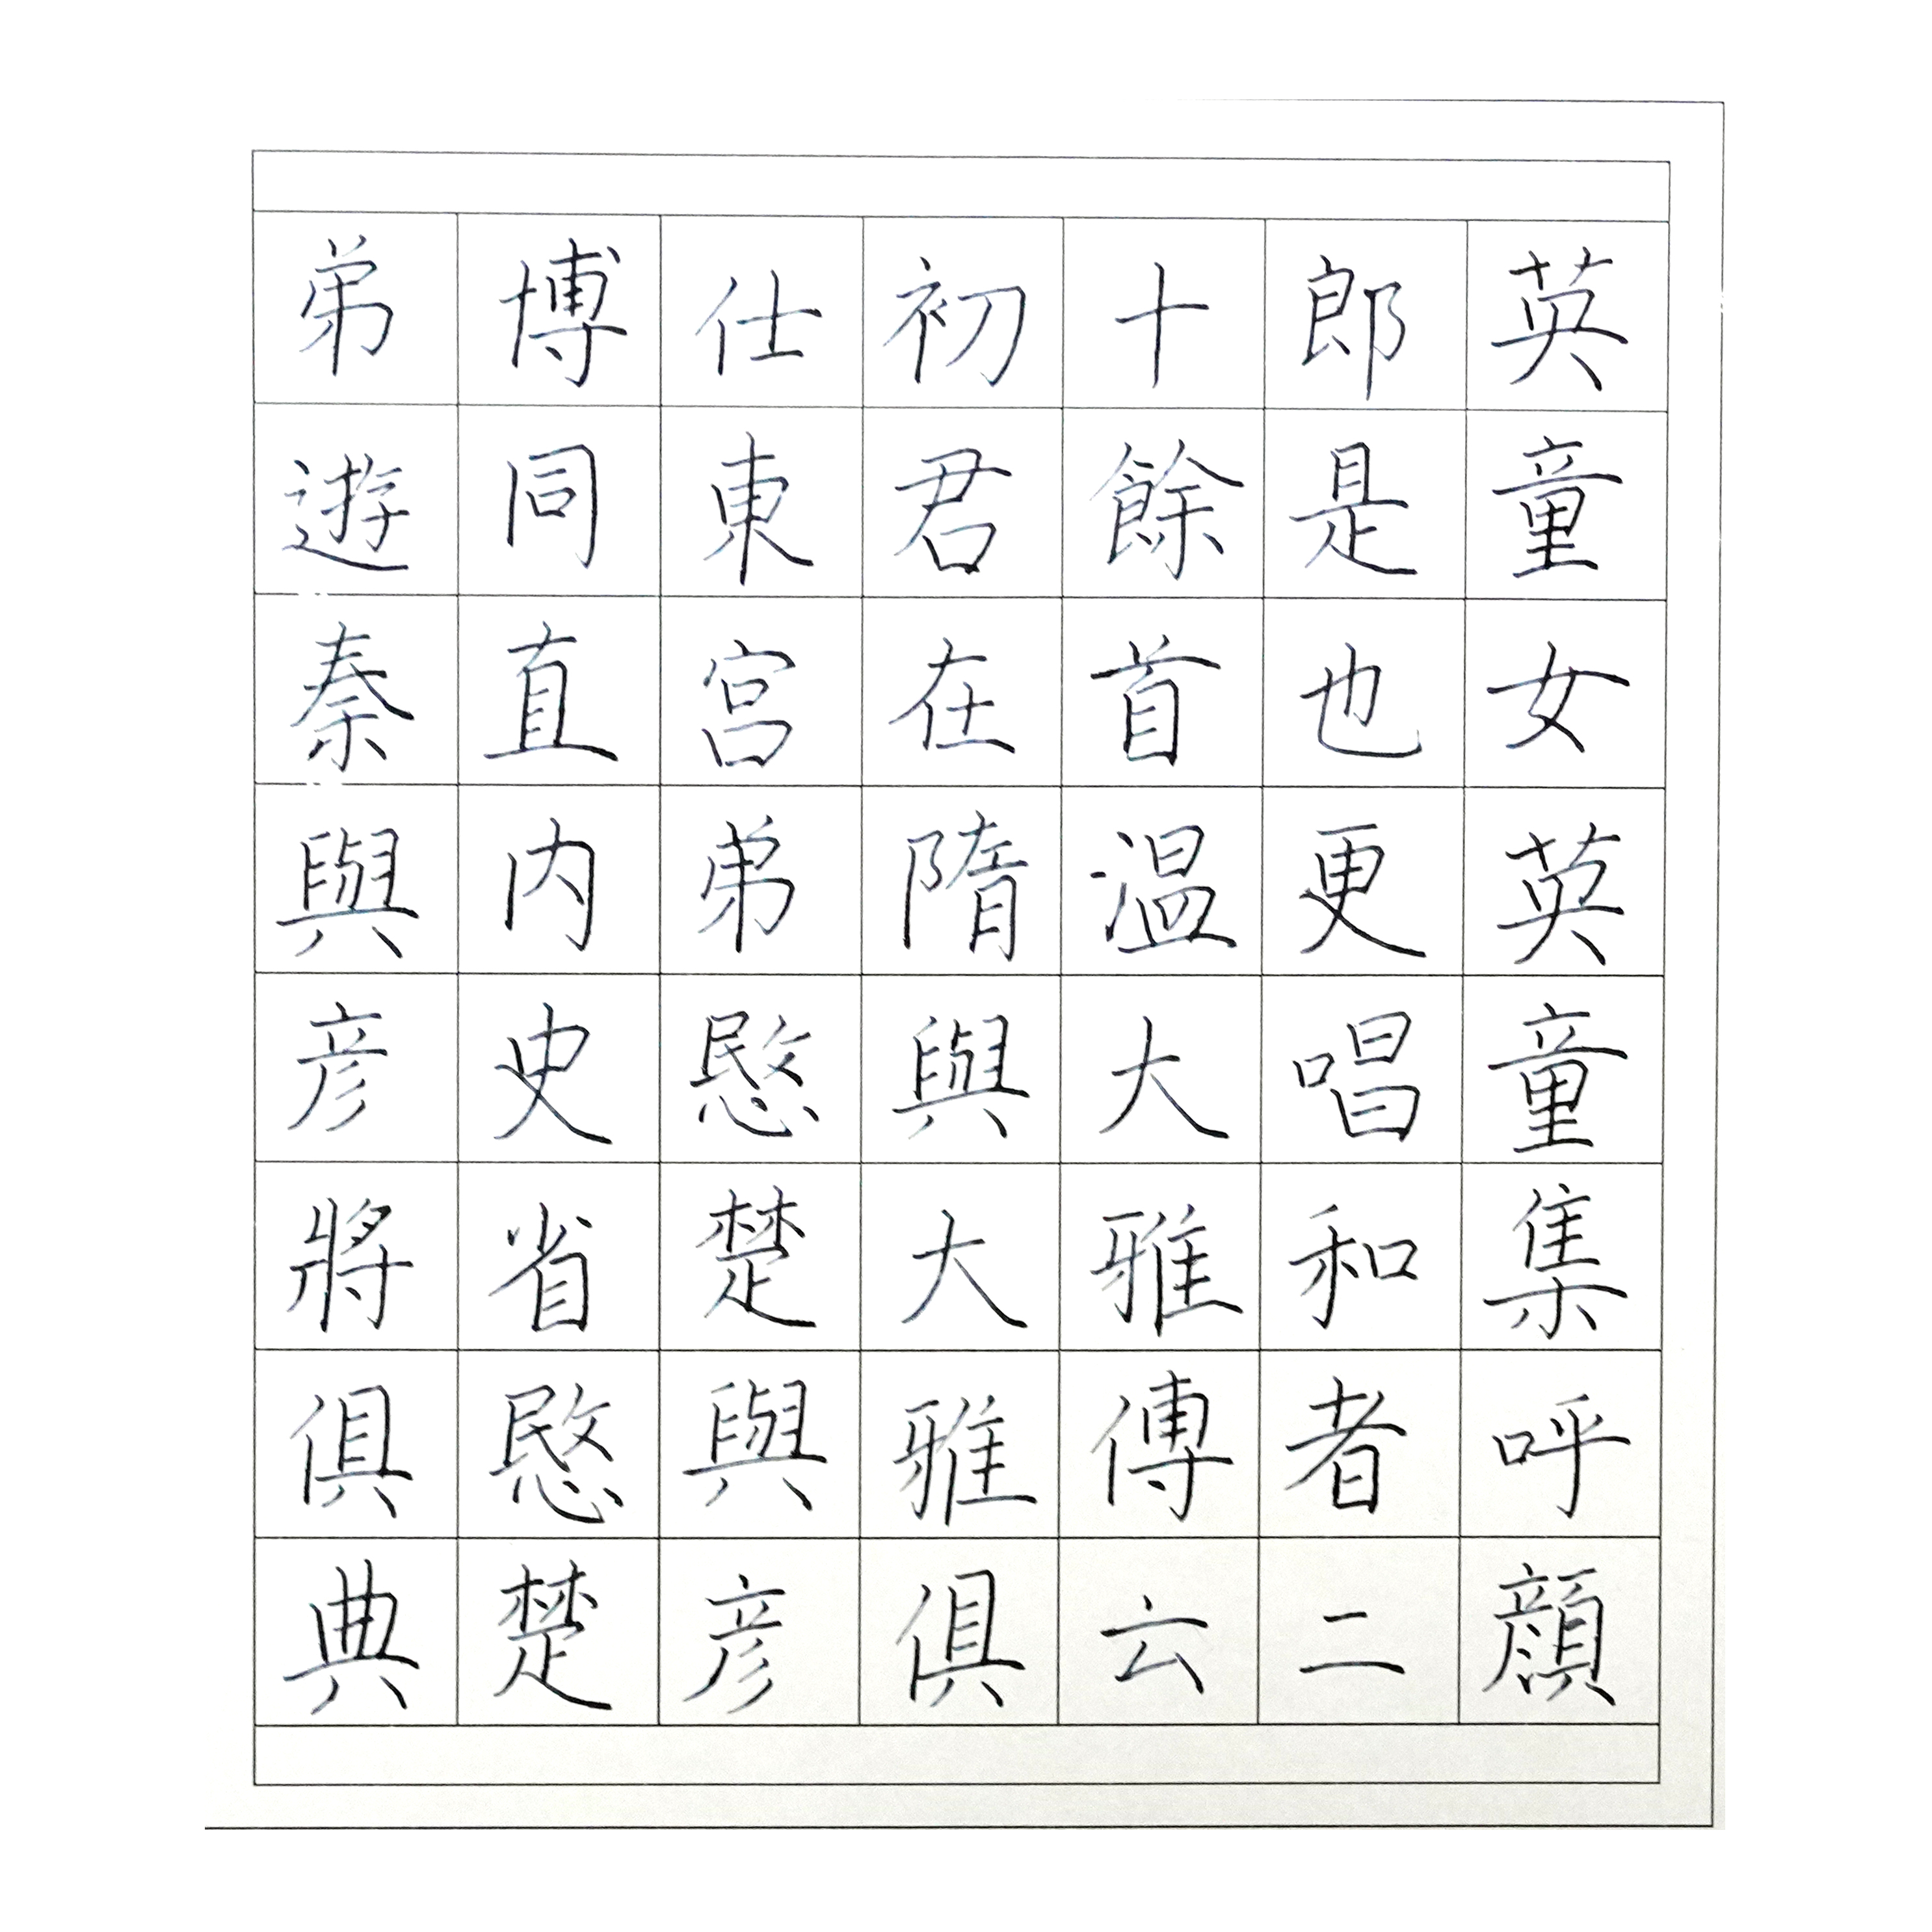 英童女英童集呼顔
郎是也更唱和者二
十餘首溫大雅傅云
初君在隋與大雅俱
仕東宮弟愍楚與彦
博同直内史省愍楚
弟遊秦與彦將俱典